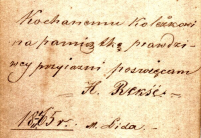 Kochanemu Koleżkowi
na pamiątkę prawdzi-
wej przyjaźni poświęcam
1865 r. M. Lida.